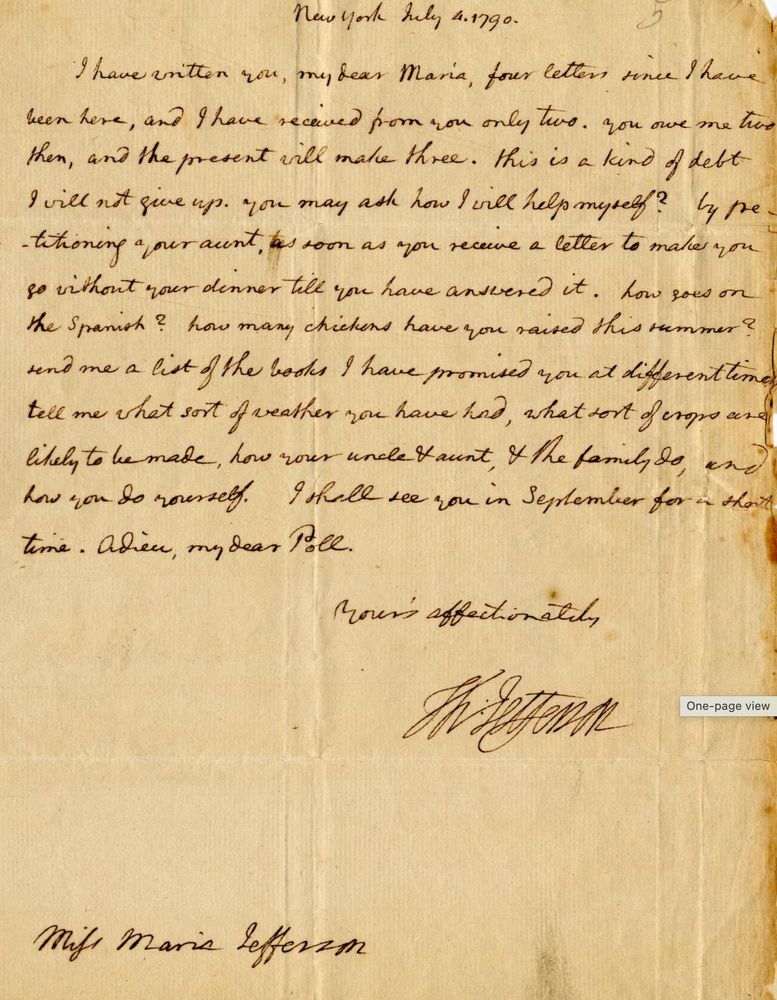 New York July 4. 1790.
5
I have written you, my dear Maria, four letters since I have
been here, and I have received from you only two. you owe me two
then, and the present will make three. this is a kind of debt
I will not give up. you may ask how I will help myself? by pe-
-titioning your aunt, as soon as you receive a letter to make you
go without your dinner till you have answered it. how goes on
the Spanish? how many chickens have you raised this summer?
send me a list of the books I have promised you at different times
tell me what sort of weather you have had, what sort of crops are
likely to be made, how your uncle & aunt, & the family do, and
how you do yourself. I shall see you in September for a short
time. Adieu, my dear Poll.
Your's affectionately
Th: Jefferson
One-page view
Miss Maria Jefferson